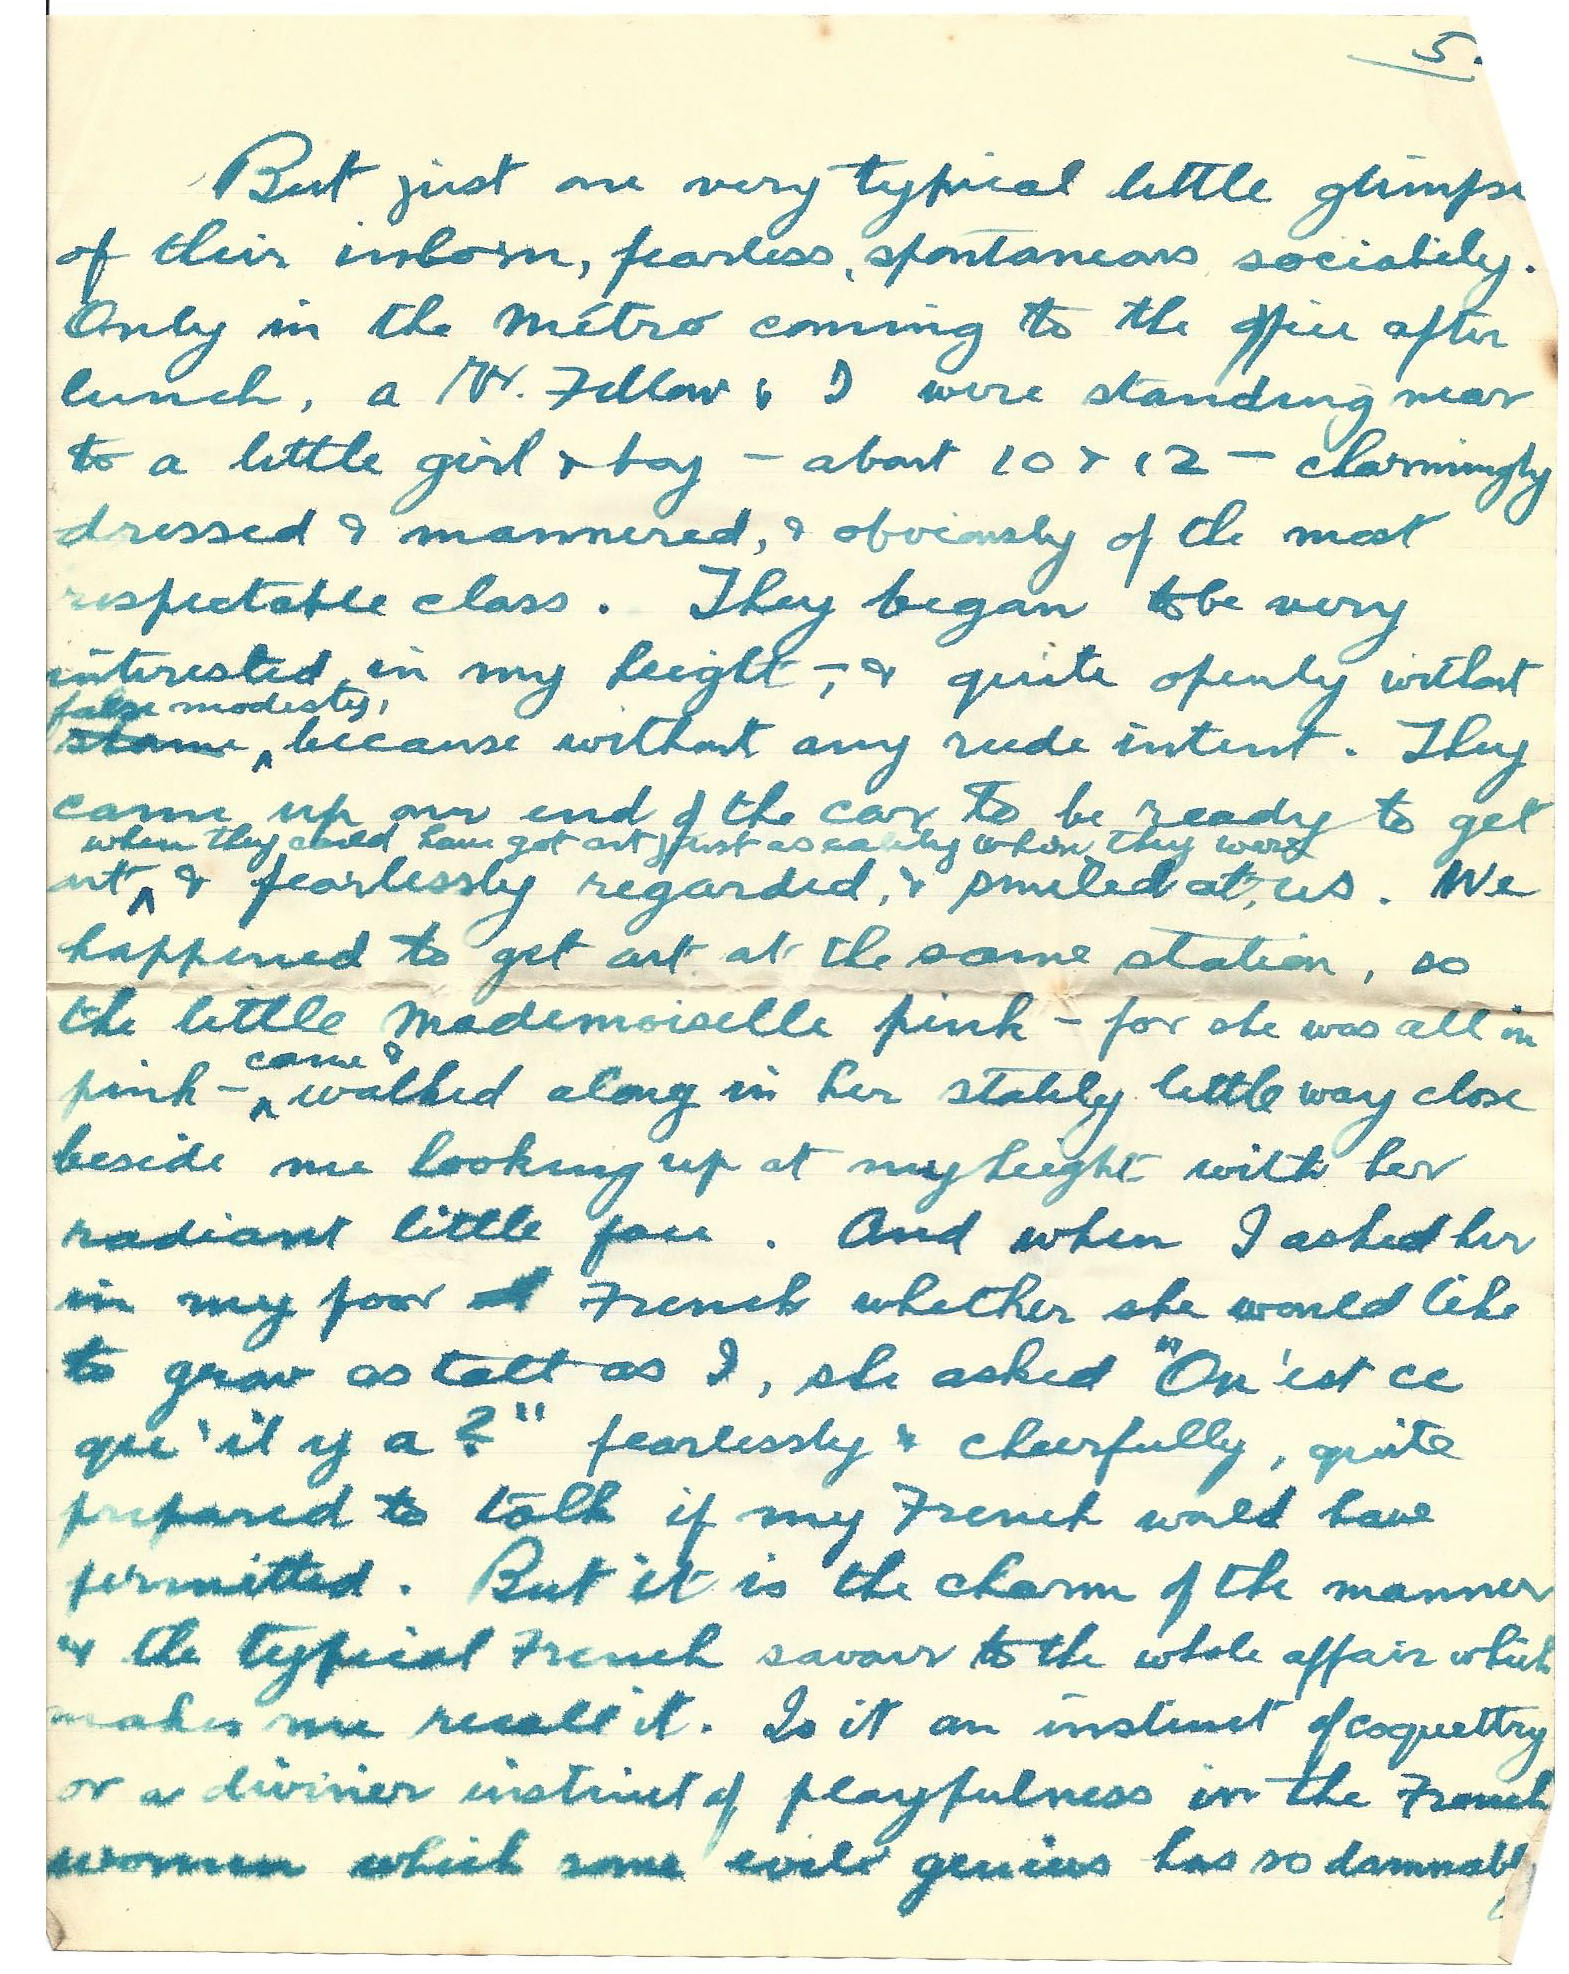 5.
But just one very typical little glimpse
of their inborn, fearless, spontaneous sociability.
Only in the Métro coming to the office after
lunch, a Mr. Fellow & I were standing near
to a little girl & boy – about 10 & 12 – charmingly
dressed & mannered, & obviously of the most
respectable class. They began to be very
interested in my height –, & quite openly without
false modesty,
shame, because without any rude intent. They
came up our end of the car to be ready to get
when they could have got out just as easily where they were
out & fearlessly regarded, & smiled at, us. We
happened to get out at the same station, so
the little Mademoiselle pink – for she was all in
came &
pink – walked along in her stately little way close
beside me looking up at my height with her
radiant little face. And when I asked her
in my poor French whether she would like
to grow as tall as I, she asked "Qu'est ce
que'il y a?" fearlessly & cheerfully, quite
prepared to talk if my French would have
permitted. But it is the charm of the manner
& the typical French savour to the whole affair which
makes me recall it. Is it an instinct of coquettry
or a diviner instinct of playfulness in the French
women which some evil genius has so damnably